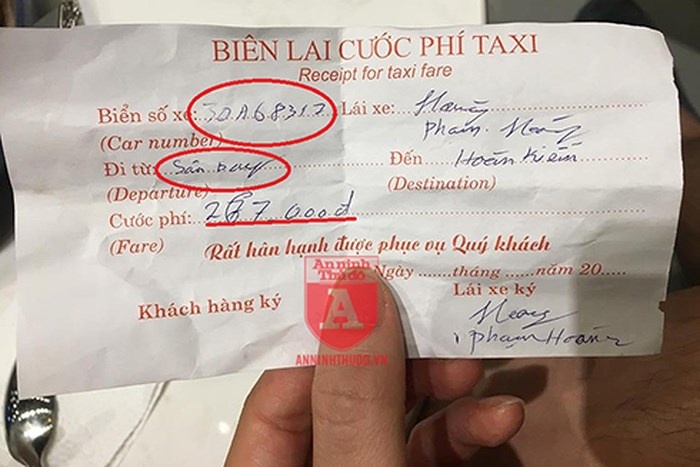 BIÊN LAI CƯỚC PHÍ TAXI
Receipt for taxi fare
Biển số xe: 30A68317 Lái xe: Hoàng
(Car number) Phạm Hoàng
Đi từ: Sân bay Đến Hoàn Kiếm
(Departure) (Destination)
Cước phí: 287 000đ
(Fare) Rất hân hạnh được phục vụ Quý khách
Ngày ...... tháng ...... năm 20 .....
Khách hàng ký Lái xe ký
Phạm Hoàng
An ninh Thủ đô
A
ANNINHTHUDO.VN